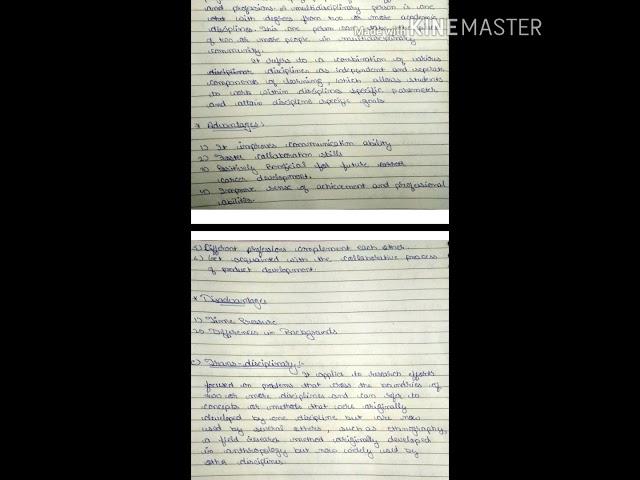 and professions. A multidisciplinary person is one
with degrees from two or more academic
disciplines. This one person can take
Made with KINEMASTER
of two or more people in multidisciplinary
community.
It refers to a combination of various
disciplines as independent and seperate
components of learning, which allows students
to work within disciplines specific parameters
and attain discipline specific goals
* Advantages :
1) It improves communication ability
2) Foster collaboration skills
3) Positively Beneficial for future
career development.
4) Improve sense of achievement and professional
abilities.
5) Different professions complement each other.
6) Get acquainted with the collaborative process
of product development.
* Disadvantages
1) Time Pressure
2) Differences in Backgrounds
c) Trans-disciplinary :-
It applies to research efforts
focused on problems that cross the boundries of
two or more disciplines and can refer to
concepts or methods that were originally
developed by one discipline but are now
used by several others, such as ethnography,
a field research method originally developed
in anthropology but now widely used by
other disciplines